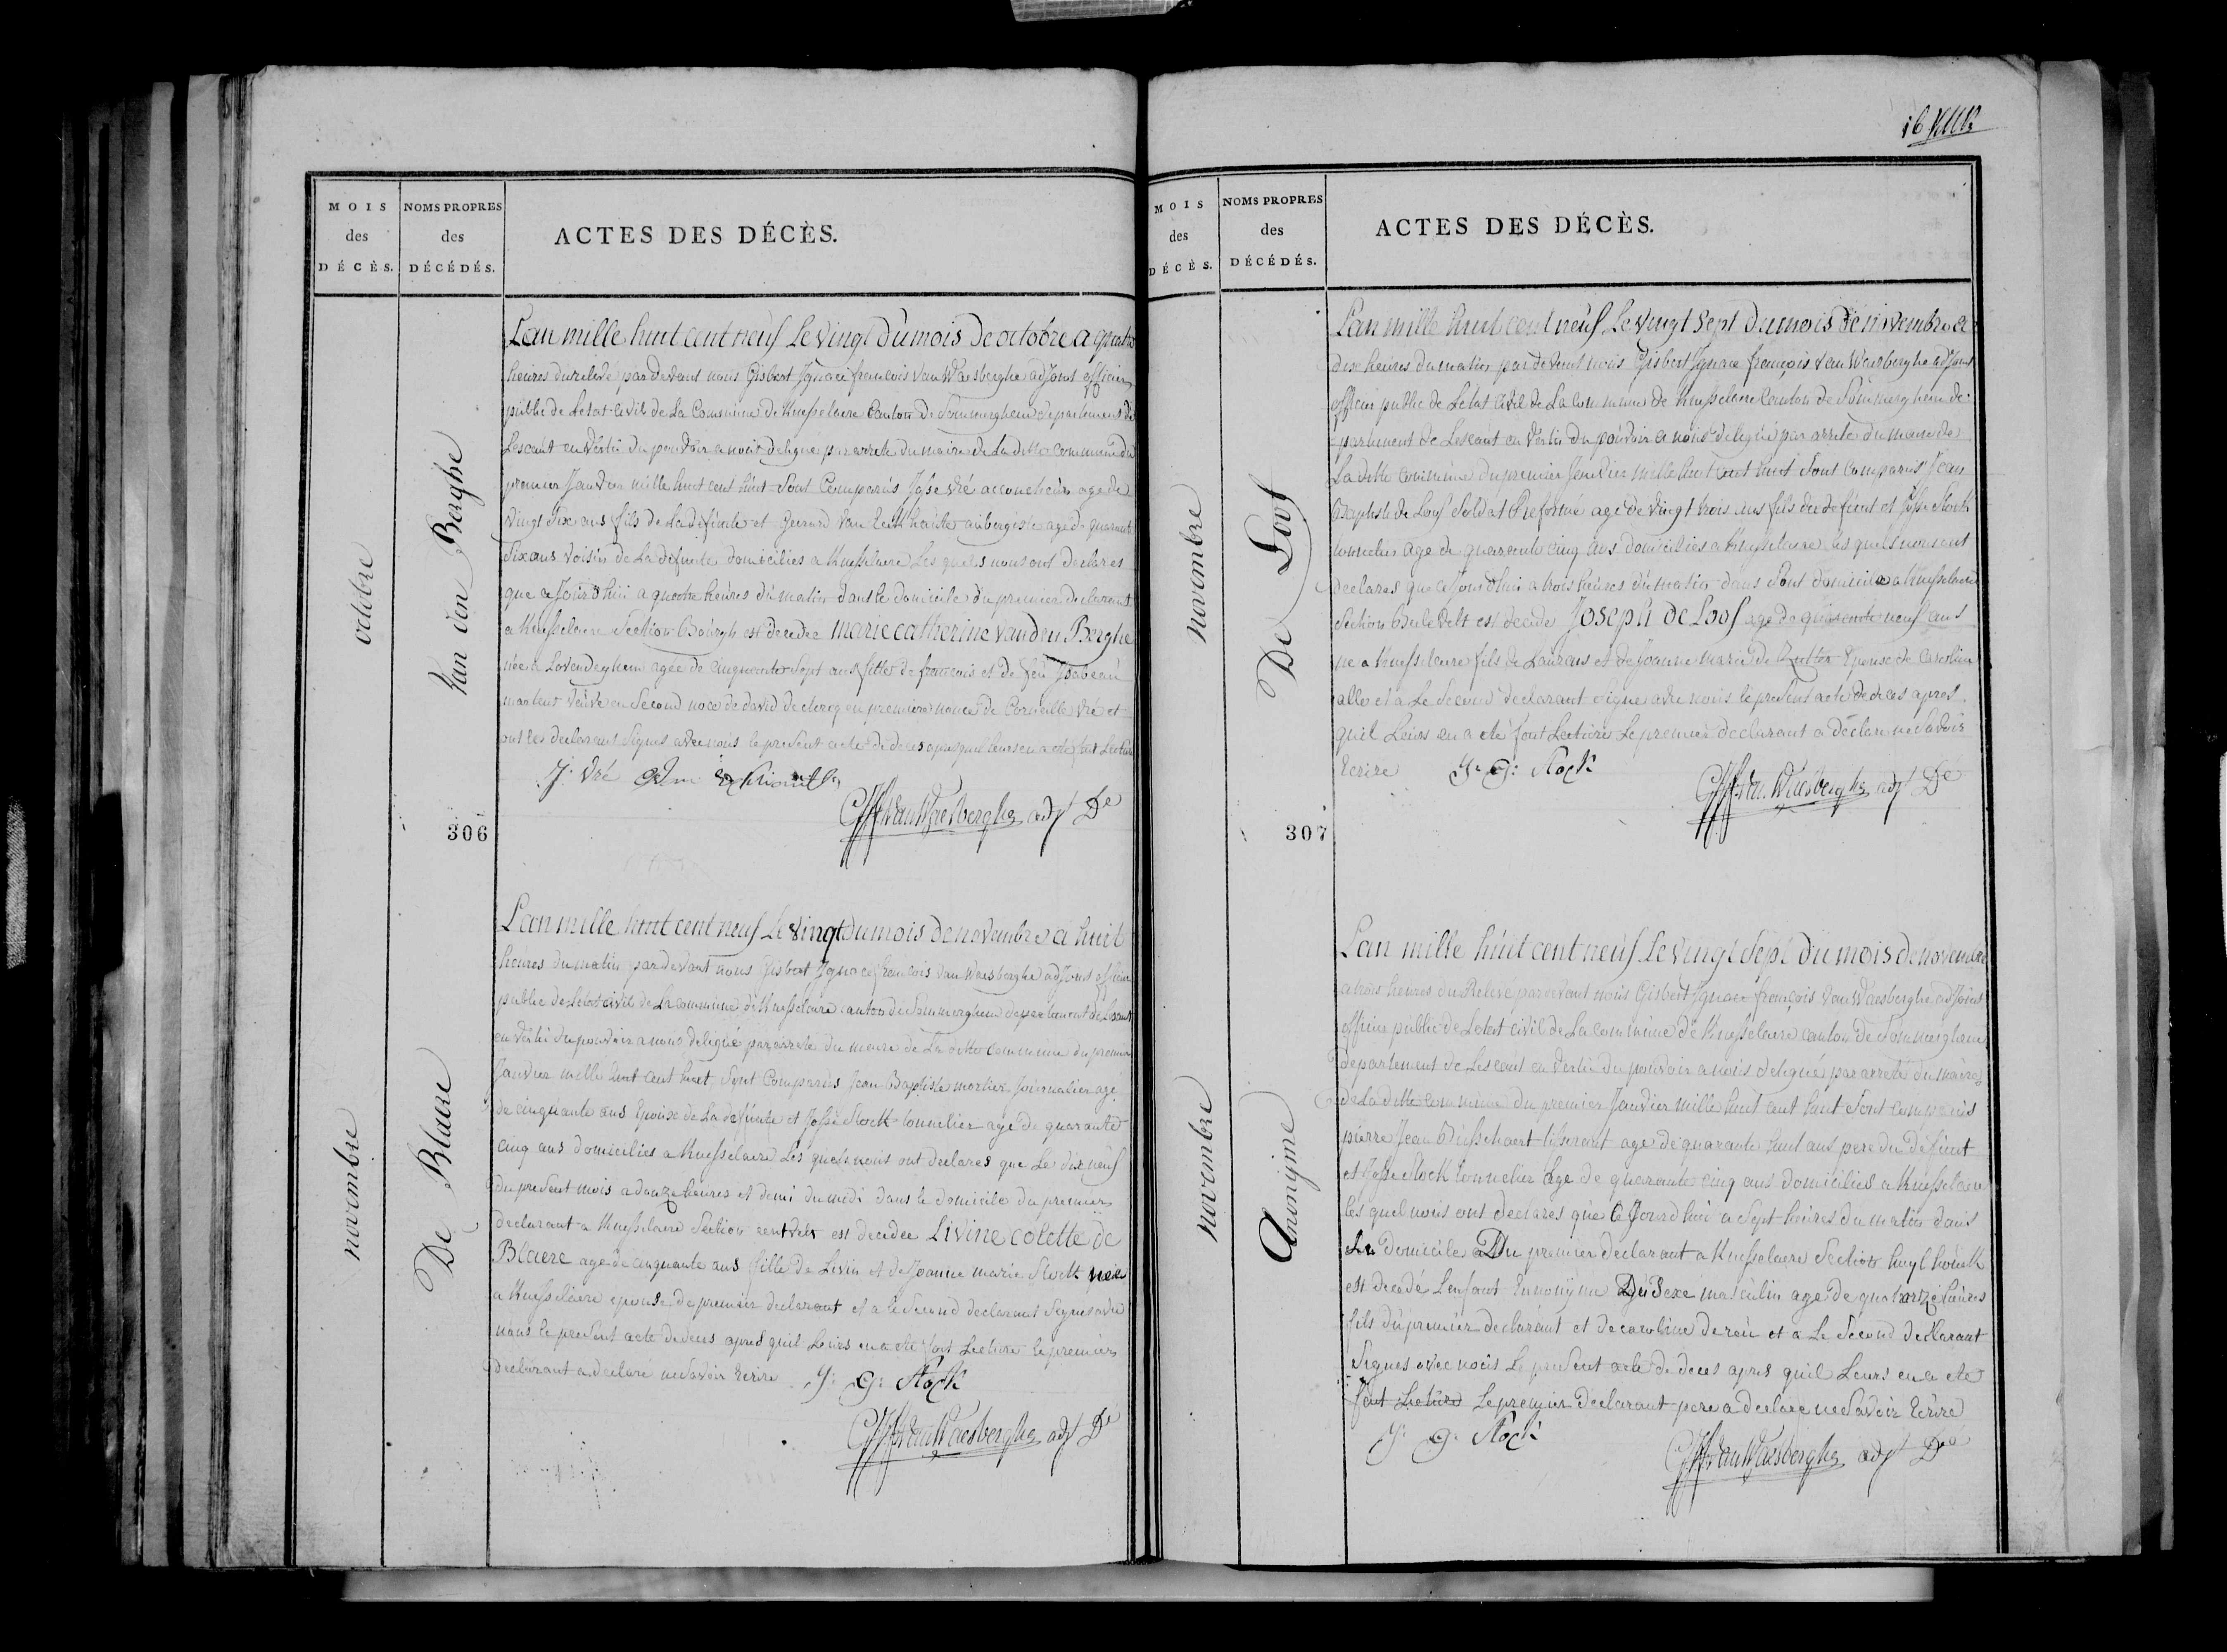 MOIS
des
DÉCÈS.
NOMS PROPRES
des
DÉCÉDÉS.
ACTES DES DÉCÈS.
octobre
Van den Berghe
Lan mille huit cent neuf Le vingt du mois de octobre a quatre
heures du relevé par devant nous Gisbert Ignace francois van Waesberghe adjoint officier
public de Letat civil de La Commune de Knesselaere Canton de Sommerghem departement de
Lescaut en vertu du pouvoir a nous deligué par arrete du maire de La ditte commune du
premier Janvier mille huit cent huit Sont Comparus Josse vré accoucheur age de
vingt Six ans fils de La defunte et Gerard van aubergiste age de quarante
Six ans voisin de La defunte domiciliés a Knesselaere Les quels nous ont declarés
que a Jourdhui a quatre heures du matin dans le domicile du premier declarant
a Knesselaere Section Bourgh est decedée marie catherine vanden Berghe
née a Lovendeghem agée de cinquante Sept ans fille de francois et de feu Isabeau
martens veuve en Second noce de david de clercq en premiere nonce de Corneille vré et
ont les declarans Signes avec nous le present acte de deces apres quil leurs en a eté fait Lecture
J: vré
GIF van Waesberghe adjt De
306
novembre
De Blaere
Lan mille huit cent neuf Le vingt du mois de novembre a huit
heures du matin par devant nous Gisbert Ignace francois van Waesberghe adjoint officier
public de Letat civil de La commune de Knesselaere canton de Sommerghem departement de Lescaut
en vertu du pouvoir a nous deligué par arrete du maire de La ditte commune du premier
Janvier mille huit cent huit Sont Comparus Jean Baptiste mortier Journalier age
de cinquante ans Epoux de La defunte et Josse Stock tonnelier age de quarante
cinq ans domiciliés a Knesselaere Les quels nous ont declares que Le dix neuf
du present mois a douze heures et demi du midi dans le domicile du premier
declarant a Knesselaere Section est decedée Livine colette de
Blaere age de cinquante ans fille de Livin et de Joanne marie Stock née
a Knesselaere epouse de premier declarant et a le Second declarant Signes avec
nous le present acte de deces apres quil Leurs en a eté fait Lecture le premier
declarant a declaré ne Savoir Ecrire J: G: Stock
GIF van Waesberghe adjt De
16
MOIS
des
DÉCÈS.
NOMS PROPRES
des
DÉCÉDÉS.
ACTES DES DÉCÈS.
novembre
De Loof
Lan mille huit cent neuf Le vingt Sept du mois de novembre a
dix heures du matin par devant nous Gisbert Ignace françois van Waesberghe adjoint
officier public de Letat civil de La commune de Knesselaere Canton de Sommerghem de-
partement de Lescaut en vertu du pouvoir a nous deligué par arrete du maire de
La ditte commune du premier Janvier mille huit cent huit Sont Comparus Jean
Baptiste de Loof Soldat Reformé age de vingt trois ans fils du defunt et Josse Stock
tonnelier age de quarante cinq ans domiciliés a Knesselaere Les quels nous ont
declares que a Jourdhui a trois heures du matin dans Sont domicile a Knesselaere
Section est decedé Joseph De Loof age de neuf ans
né a Knesselaere fils de Laurens et de Joanne marie de Epouse de Caroline
et a Le Second declarant Signe avec nous le present acte de deces apres
quil Leurs en a eté fait Lecture Le premier declarant a declare ne Savoir
Ecrire J: G: Stock
GIF van Waesberghe adjt De
307
novembre
Anonijme
Lan mille huit cent neuf Le vingt Sept du mois de novembre
a trois heures du Relevé par devant nous Gisbert Ignace françois van Waesberghe adjoint
officier public de Letat civil de La commune de Knesselaere canton de Sommerghem
departement de Lescaut en vertu du pouvoir a nous deligué par arreté du maire
de La ditte commune du premier Janvier mille huit cent huit Sont comparus
pierre Jean Busschaert tisserant age de quarante huit ans pere du defunt
et Josse Stock tonnelier age de quarante cinq ans domiciliés a Knesselaere
les quel nous ont declares que a Jourdhui a Sept heures du matin dans
Le domicile Du premier declarant a Knesselaere Section
est decedé Lenfant Ennonijme Du Sexe masculin age de quatortze heures
fils du premier declarant et de caroline et a Le Second declarant
Signes avec nous Le present acte de deces apres quil Leurs en a ete
fait Lecture Le premier declarant pere a declare ne Savoir Ecrire
J: G: Stock
GIF van Waesberghe adjt De